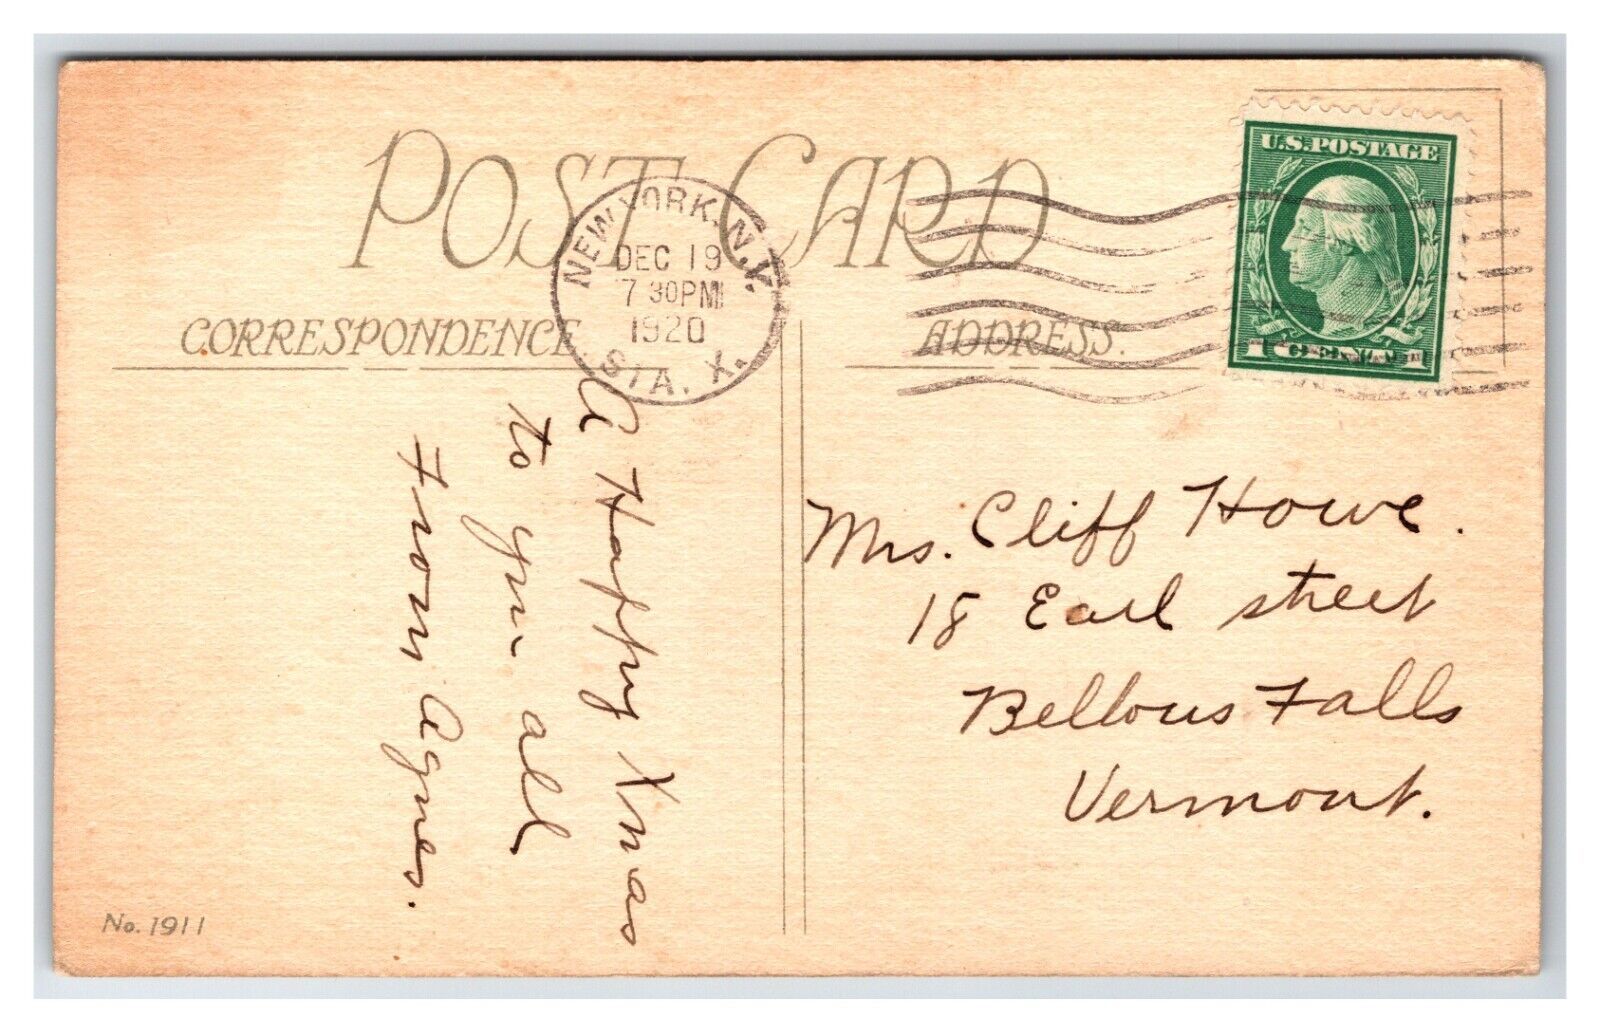 POST CARD
CORRESPONDENCE
ADDRESS.
NEW YORK, N.Y.
DEC 19
7 30 PM
1920
STA. X.
U.S. POSTAGE
1 CENT 1
A Happy Xmas
to you all
From Agnes.
Mrs. Cliff Howe.
18 Earl street
Bellous Falls
Vermont.
No. 1911